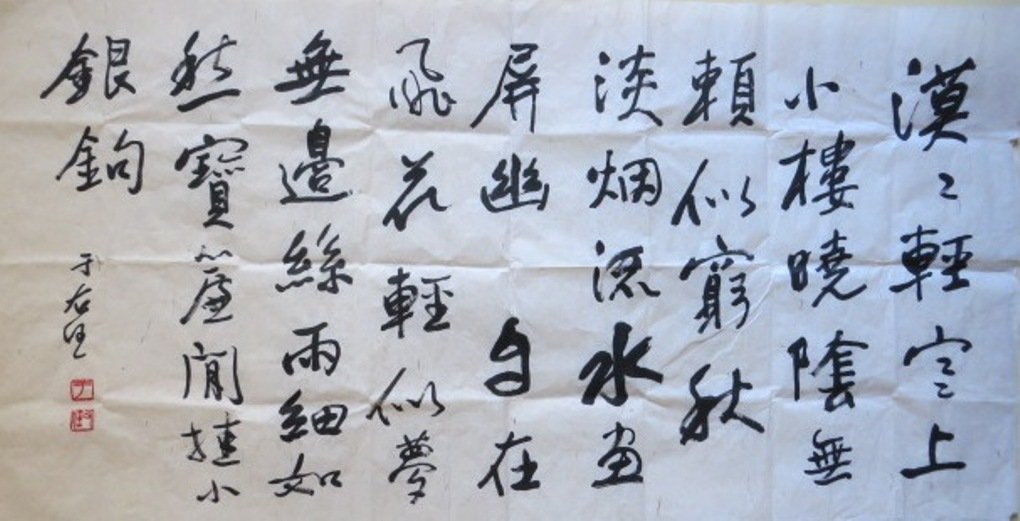 漠〻輕寒上
小樓曉陰無
賴似窮秋
淡烟流水畫
屏幽自在
飛花輕似夢
無邊絲雨細如
愁寶簾閒掛小
銀鉤
于右任